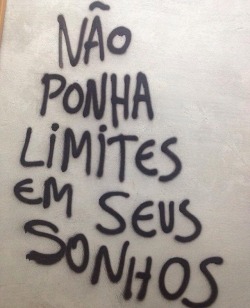 NÃO
PONHA
LiMiTES
EM SEUS
SONHOS